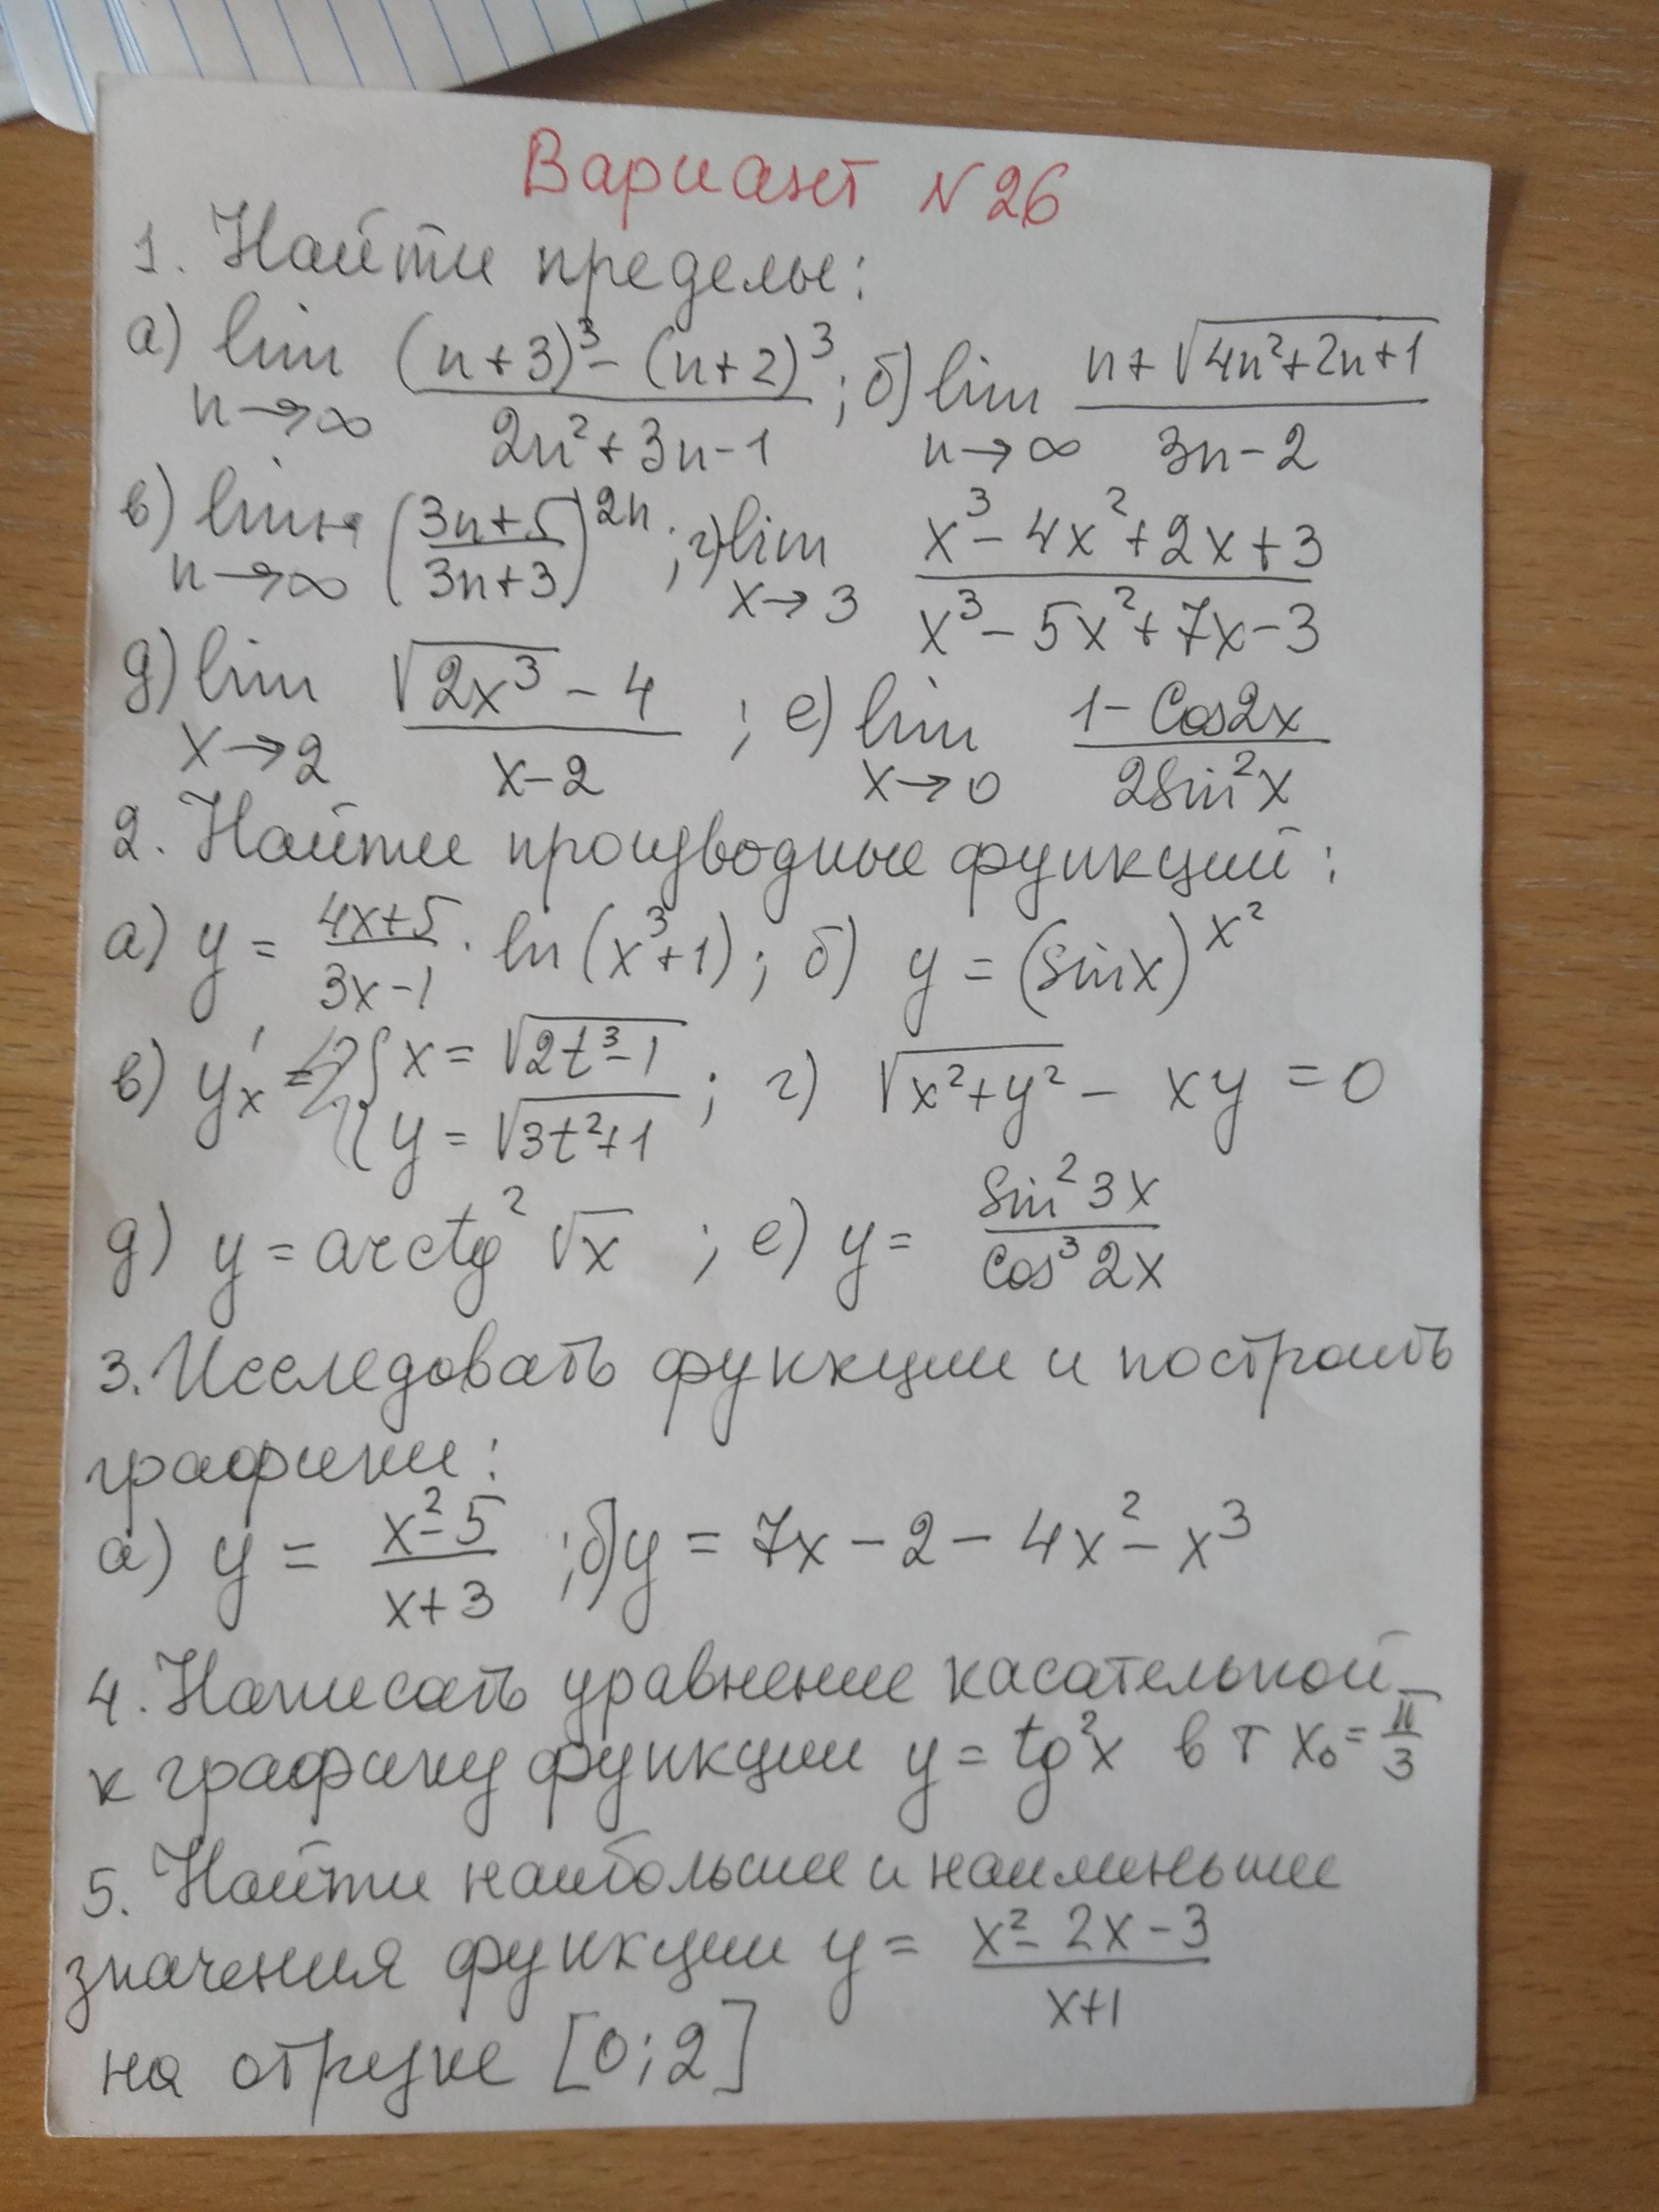 Вариант №26
1. Найти пределы:
а) lim n→∞ ((n+3)³ - (n+2)³)/(2n²+3n-1) ; б) lim n→∞ (n+√(4n²+2n+1))/(3n-2)
в) lim n→∞ ((3n+5)/(3n+3))^(2n) ; г) lim x→3 (x³-4x²+2x+3)/(x³-5x²+7x-3)
д) lim x→2 (√(2x³) - 4)/(x-2) ; е) lim x→0 (1-Cos2x)/(2Sin²x)
2. Найти производные функций:
а) y = (4x+5)/(3x-1) · ln(x³+1); б) y = (sinx)^(x²)
в) y'ₓ = { x = √(2t³-1) ; y = √(3t²+1) ; г) √(x²+y²) - xy = 0
д) y = arctg² √x ; е) y = (Sin² 3x)/(Cos³ 2x)
3. Исследовать функции и построить
графики:
а) y = (x²-5)/(x+3) ; б) y = 7x - 2 - 4x² - x³
4. Написать уравнение касательной
к графику функции y = tg²x в т x₀ = π/3
5. Найти наибольшие и наименьшие
значения функции y = (x²-2x-3)/(x+1)
на отрезке [0;2]